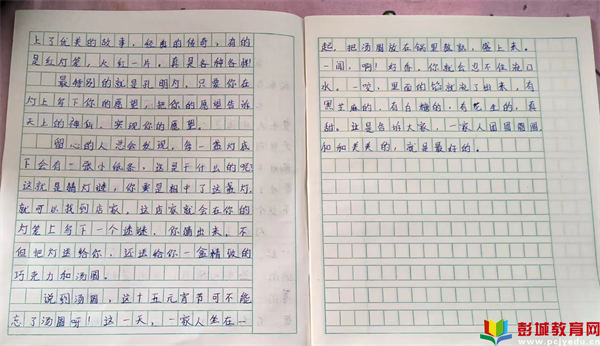 上了优美的故事，经典的传奇，有的
是红灯笼，火红一片，真是各种各样！
最特别的就是孔明灯，只要你在
灯上写下你的愿望，把你的愿望告诉
天上的神仙，实现你的愿望。
留心的人总会发现，每一盏灯底
下会有一张小纸条，这是干什么的呢？
这就是猜灯谜，你要是相中了这盏灯，
就可以找到店家，这店家就会在你的
灯笼上写下一个谜谜，你猜出来，不
但把灯送给你，还送给你一盒精致的
巧克力和汤圆。
说到汤圆，这十五元宵节可不能
忘了汤圆呀！这一天，一家人坐在一
起，把汤圆放在锅里煮熟，盛上来。
一闻，啊！好香，你就会忍不住流口
水。一咬，里面的馅就流了出来，有
黑芝麻的，有白糖的，有花生的，真
甜。这是告诉大家，一家人团团圆圆，
和和美美的，就是最好的。
彭城教育网
www.pcjyedu.cn